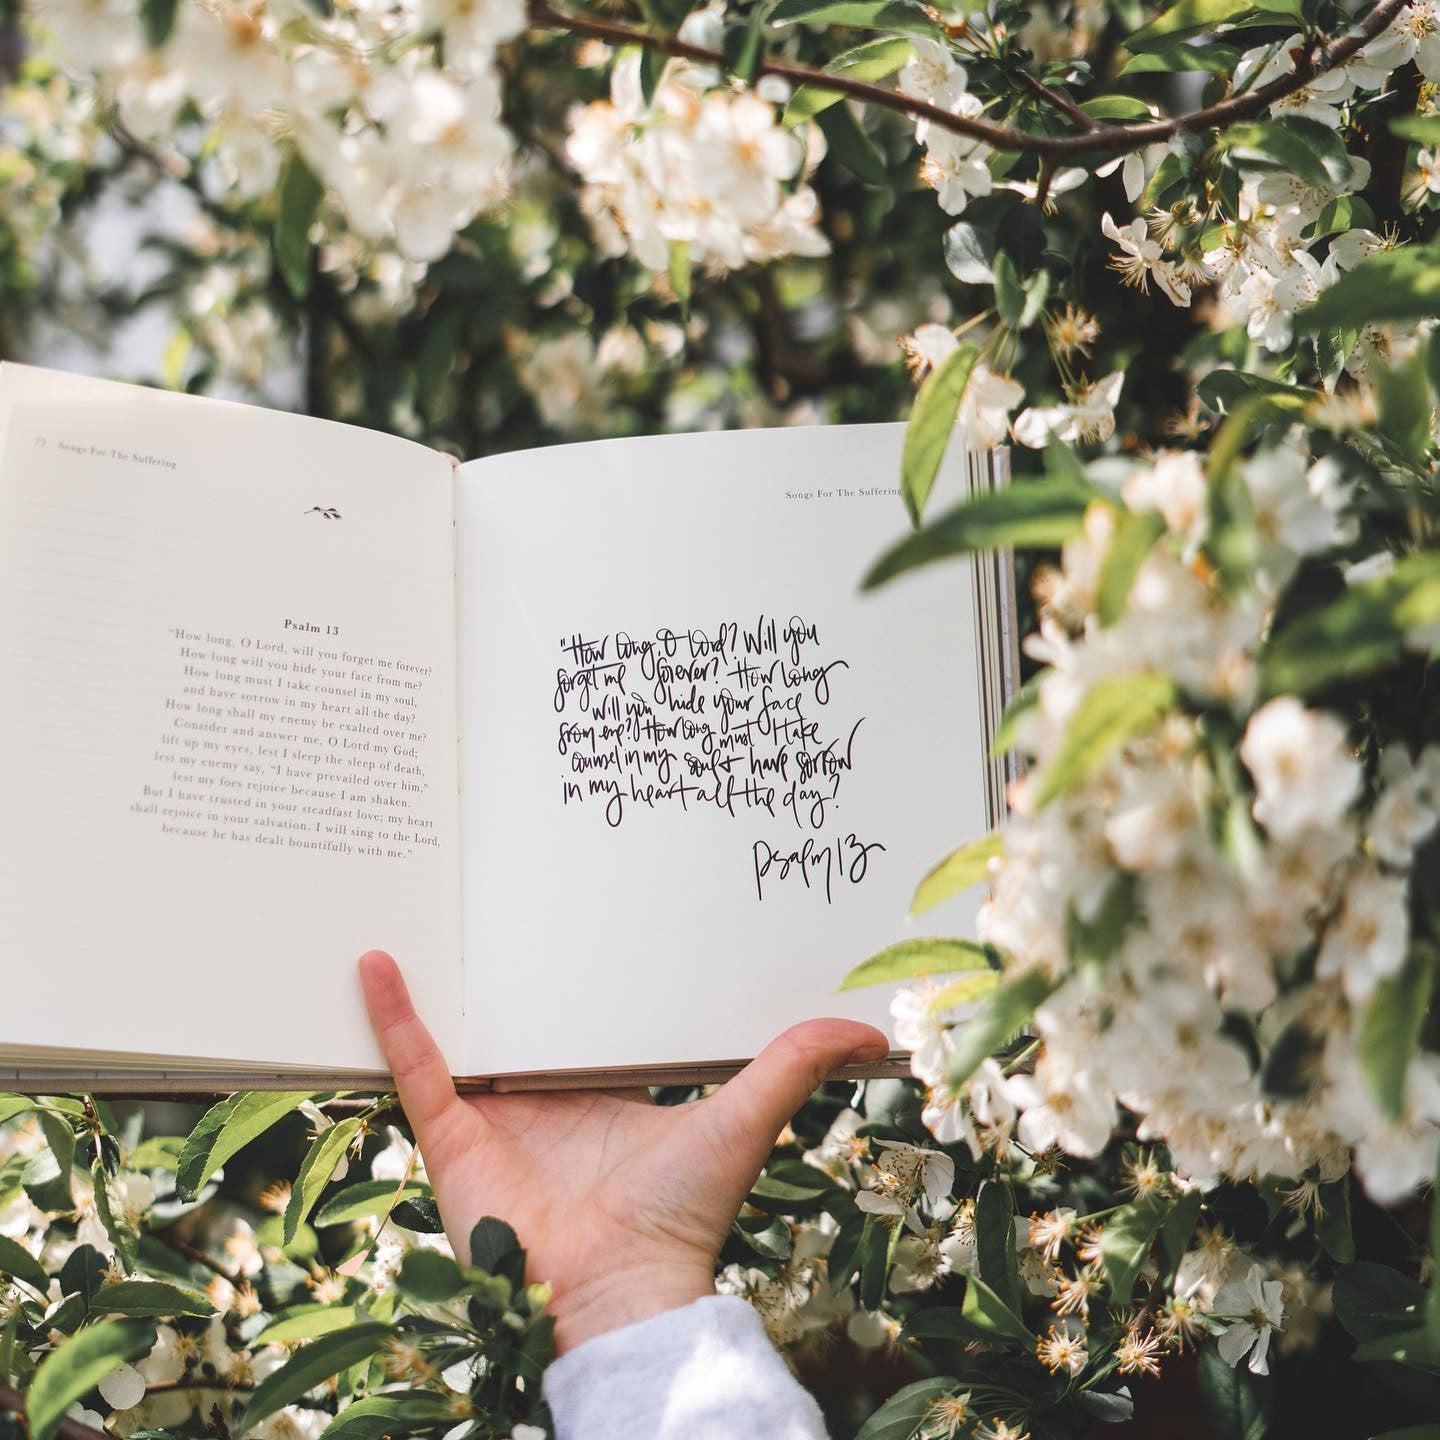 72 Songs For The Suffering
Psalm 13
"How long, O Lord, will you forget me forever?
How long will you hide your face from me?
How long must I take counsel in my soul,
and have sorrow in my heart all the day?
How long shall my enemy be exalted over me?
Consider and answer me, O Lord my God;
lift up my eyes, lest I sleep the sleep of death,
lest my enemy say, "I have prevailed over him,"
lest my foes rejoice because I am shaken.
But I have trusted in your steadfast love; my heart
shall rejoice in your salvation. I will sing to the Lord,
because he has dealt bountifully with me."
Songs For The Suffering
"How long, O Lord? Will you
forget me forever? How long
will you hide your face
from me? How long must I take
counsel in my soul + have sorrow
in my heart all the day?
psalm 13